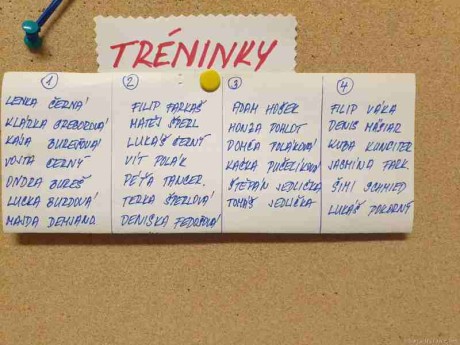 TRÉNINKY
1
LENKA ČERNÁ
KLÁRKA GREGOROVÁ
KÁJA BUREŠOVÁ
VOJTA ČERNÝ
ONDRA BUREŠ
LUCKA BURDOVÁ
MAJDA DEMJANO
2
FILIP FARKAŠ
MATĚJ ŠPERL
LUKÁŠ ČERNÝ
VÍT POLÁK
PÉŤA TANCER.
TERKA ŠPERLOVÁ
DENISKA FEDROVÁ
3
ADAM HOŠEK
HONZA POHLOT
DOMČA POLÁKOVÁ
KAČKA
ŠTĚPÁN JEDLIČKA
TOMÁŠ JEDLIČKA
4
FILIP VÁŇA
DENIS
KUBA
JASMÍNA FARK.
ŠIMI SCHMIED
LUKÁŠ POKORNÝ